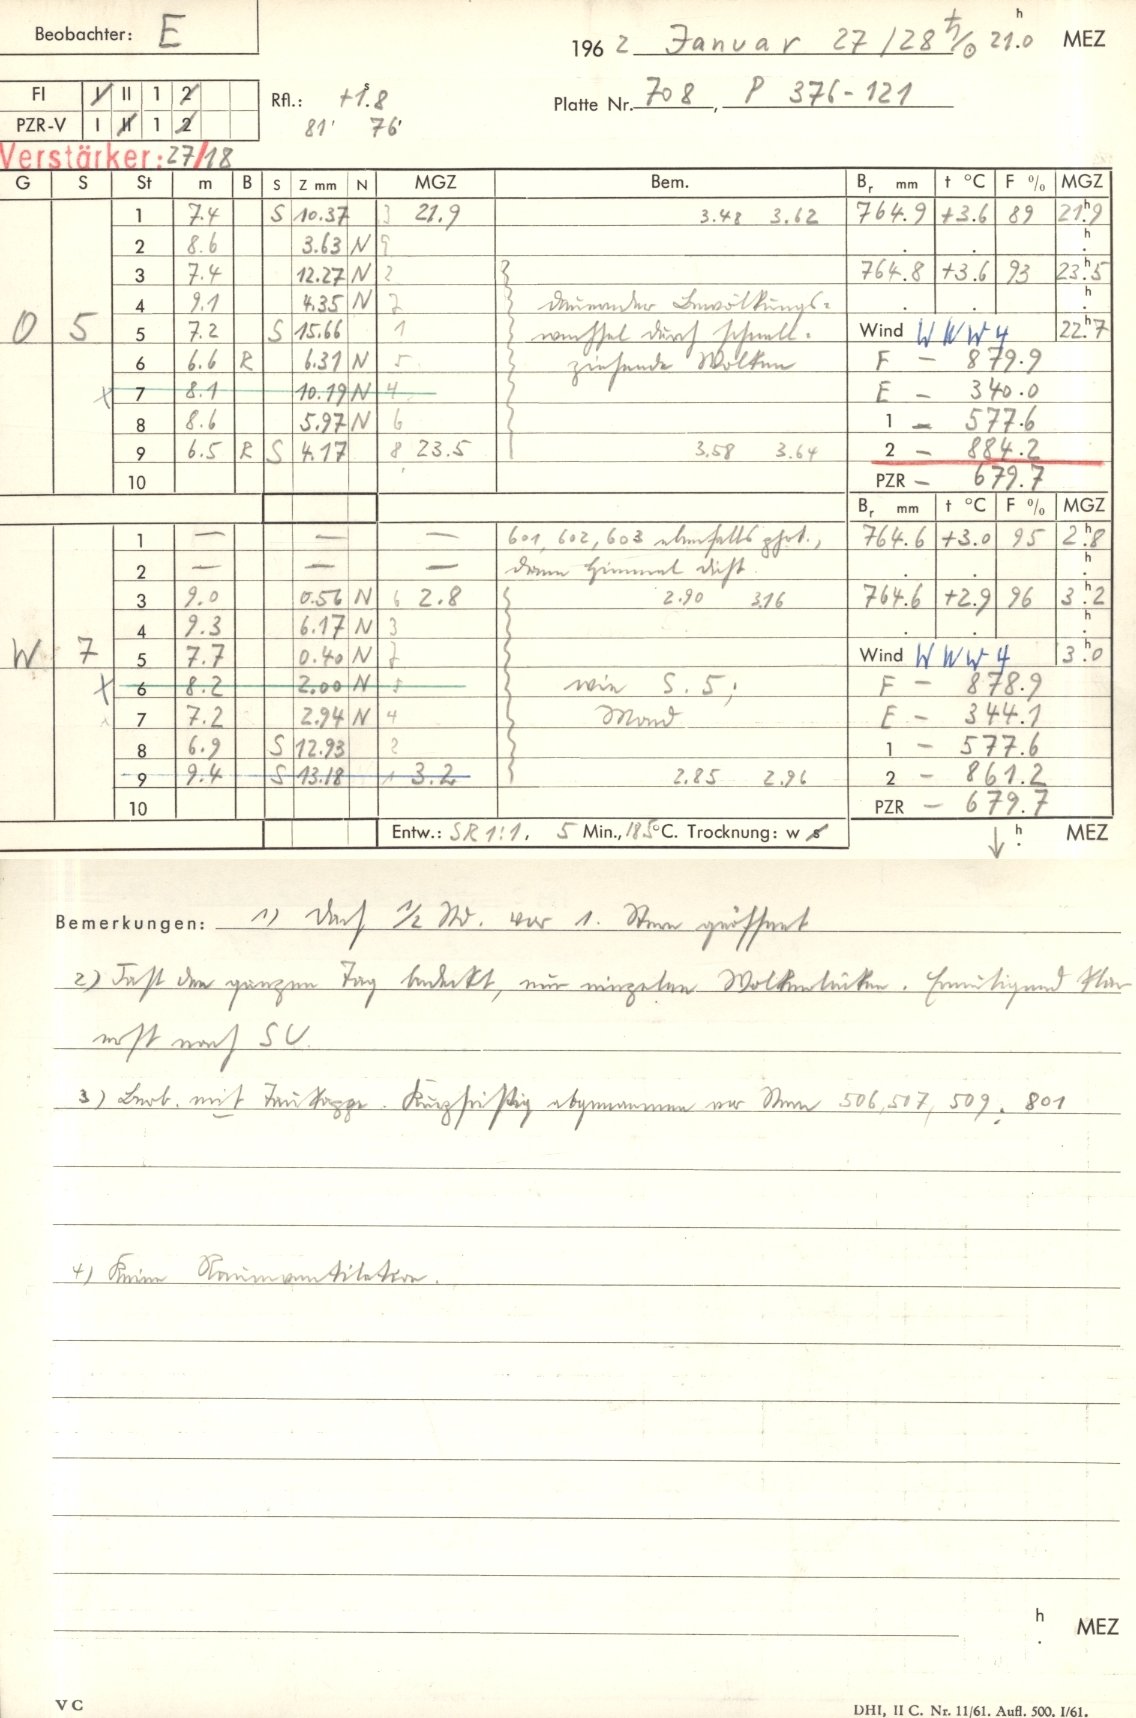 Beobachter: E
1962 Januar 27/28 21.0 h MEZ
FI I II 1 2
Rfl.: +1.8 s
Platte Nr. 708, P 376-121
PZR-V I II 1 2
81' 76'
Verstärker: 27/18
G S St m B S Z mm N MGZ Bem. Br mm t °C F % MGZ
1 7.4 S 10.37 3 21.9 3.48 3.62 764.9 +3.6 89 21h9
2 8.6 3.63 N 9 h
3 7.4 12.27 N 2 764.8 +3.6 93 23h5
4 9.1 4.35 N 7 dauernder Bewölkungs= h
O 5 5 7.2 S 15.66 1 wechsel durch schnell= Wind WNW 4 22h7
6 6.6 R 6.31 N 5 ziehende Wolken F - 879.9
x 7 8.1 10.19 N 4 E - 340.0
8 8.6 5.97 N 6 1 - 577.6
9 6.5 R S 4.17 8 23.5 3.58 3.64 2 - 884.2
10 PZR - 679.7
Br mm t °C F % MGZ
1 — — — 601, 602, 603 ebenfalls phot., 764.6 +3.0 95 2h8
2 — — — dann Himmel dicht. h
3 9.0 0.56 N 6 2.8 2.90 3.16 764.6 +2.9 96 3h2
4 9.3 6.17 N 3 h
W 7 5 7.7 0.40 N 7 Wind WNW 4 3h0
x 6 8.2 2.00 N 5 wie S. 5; F - 878.9
7 7.2 2.94 N 4 Mond E - 344.1
8 6.9 S 12.93 2 1 - 577.6
9 9.4 S 13.18 1 3.2 2.85 2.96 2 - 861.2
10 PZR - 679.7
Entw.: SR 1:1. 5 Min., 18.5°C. Trocknung: w s h MEZ
Bemerkungen: 1) Dach 1/2 Std. vor 1. Stern geöffnet
2) Fast den ganzen Tag bedeckt, nur einzelne Wolkenlücken.
erst nach SU.
3) Beob. mit Taukappe. Kurzfristig abgenommen vor Stern 506, 507, 509, 801
4) Keine Raumventilation.
h MEZ
V C
DHI, II C. Nr. 11/61. Aufl. 500. I/61.